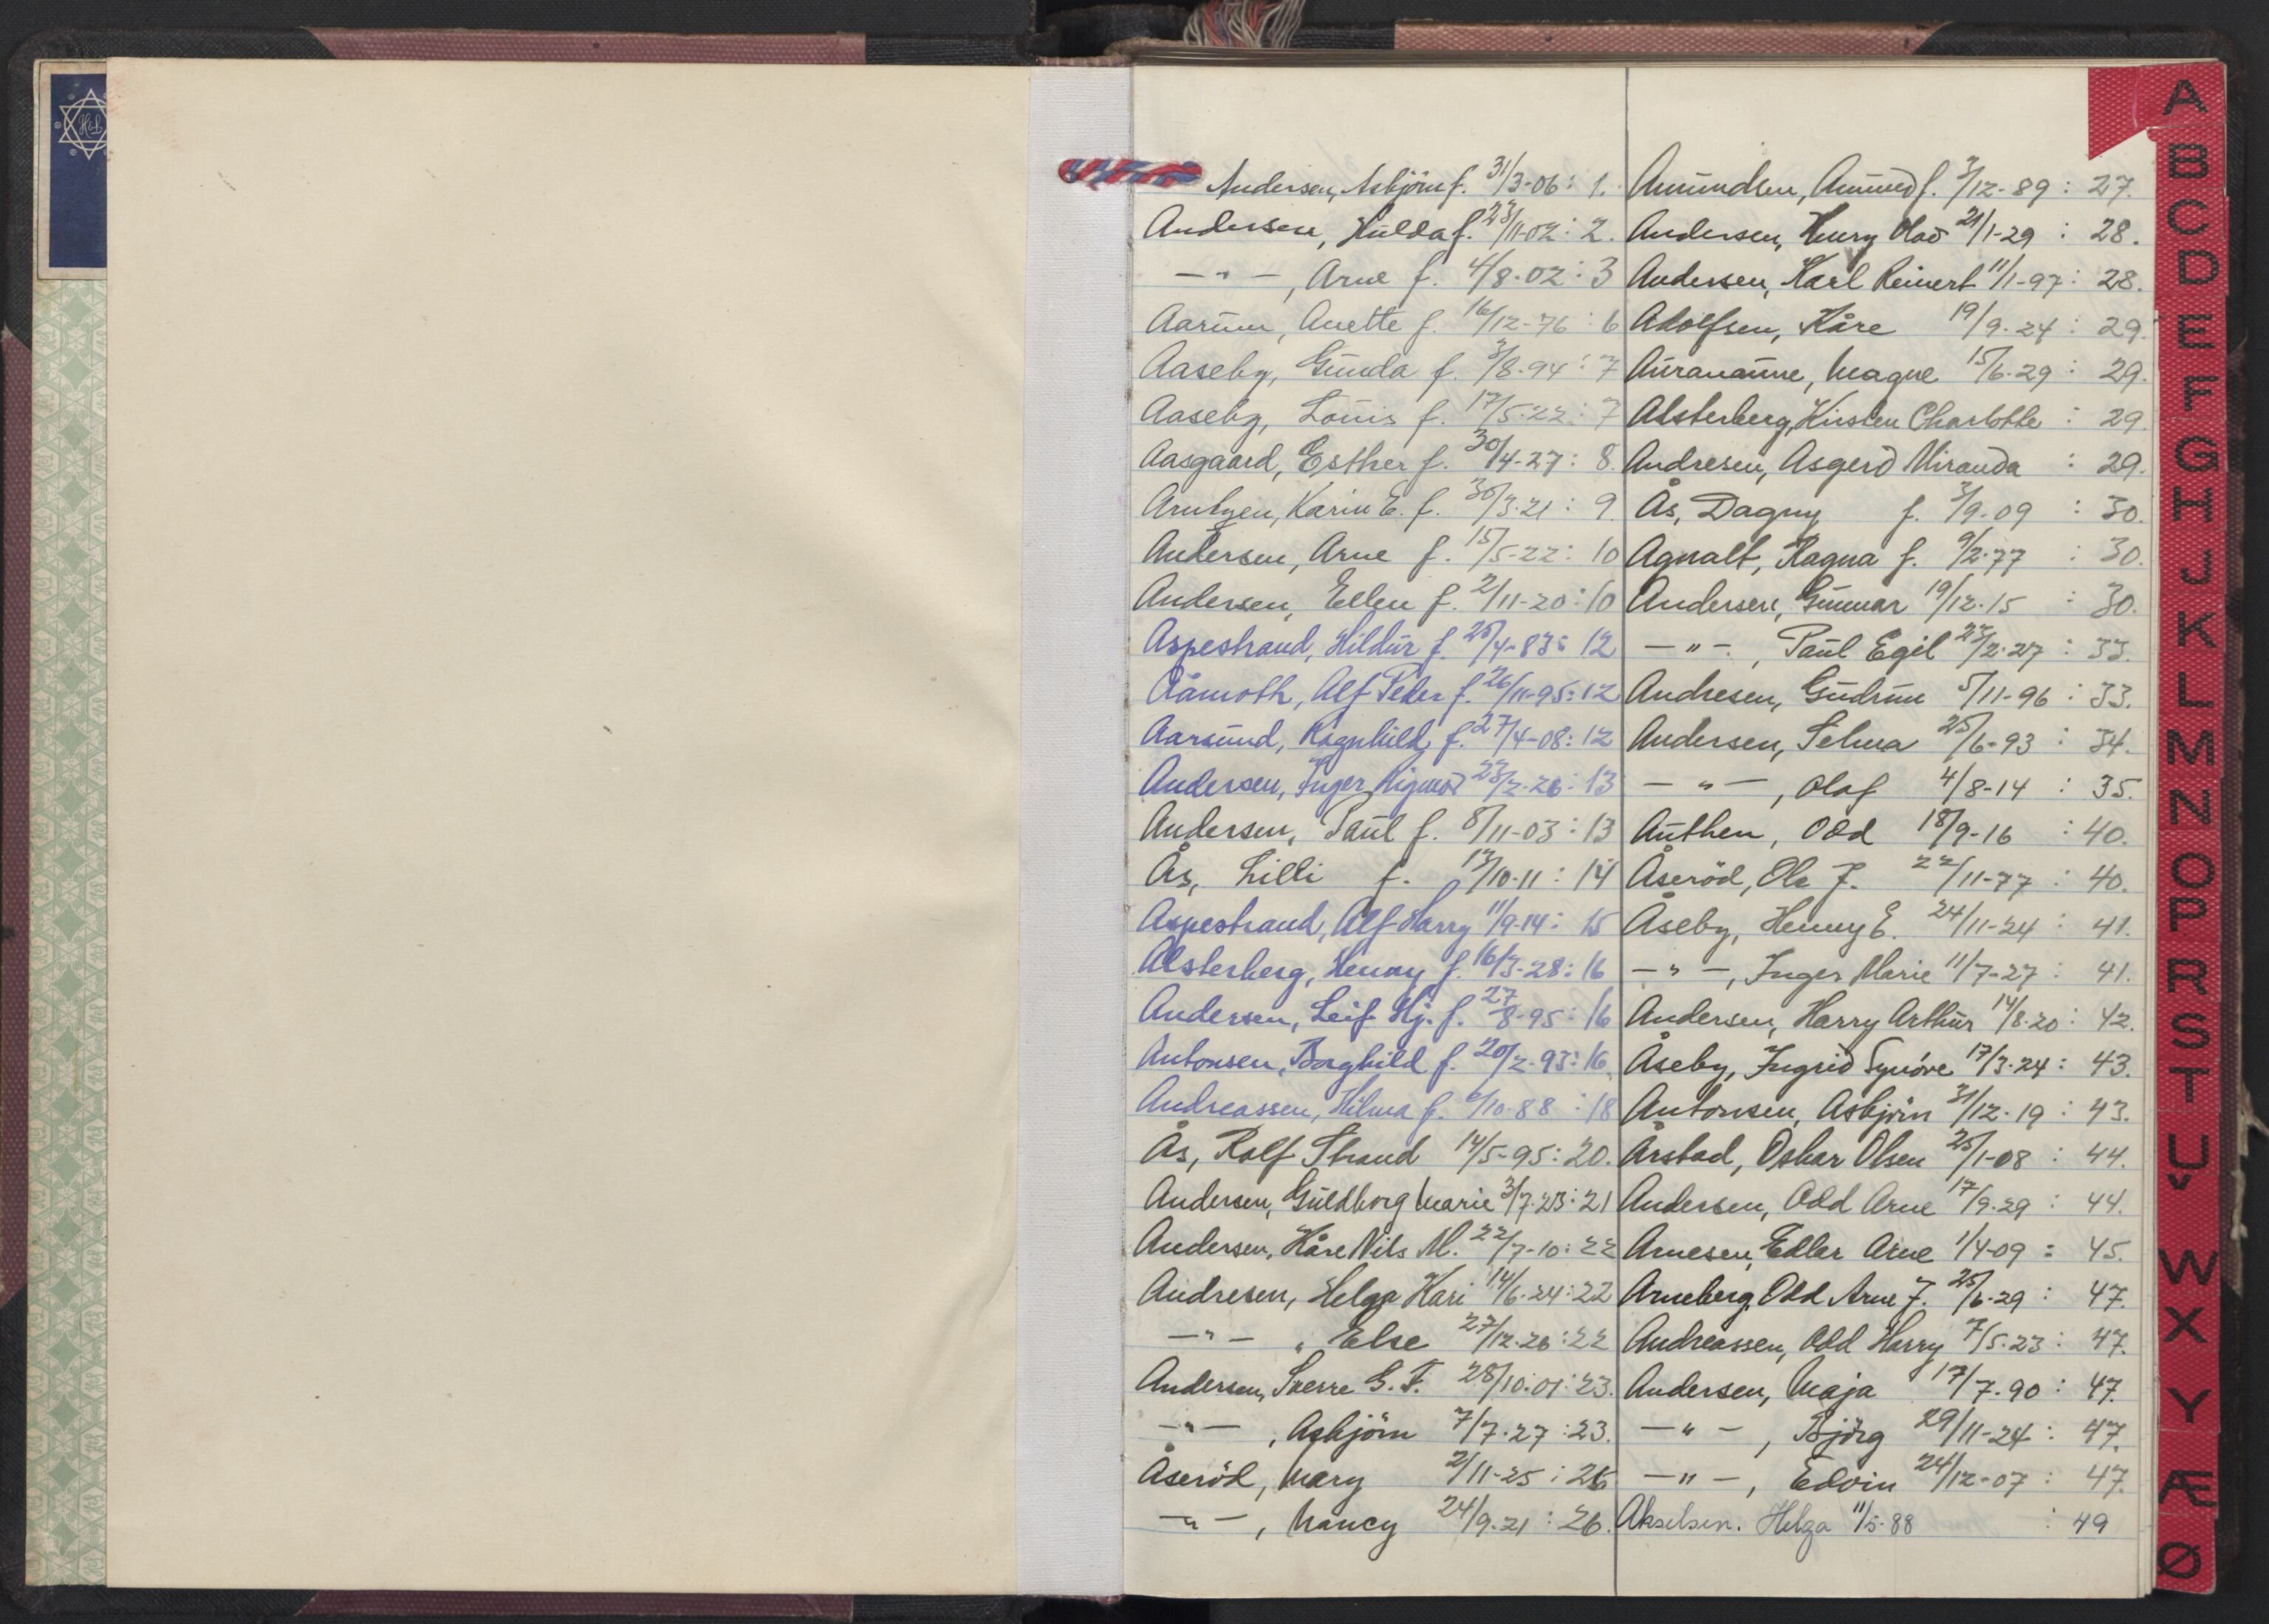 H&L
Andersen, Asbjörn f. 31/3-06 : 1.
Andersen, Hulda f. 23/11-02 : 2.
—"—, Arne f. 4/8-02 : 3
Aarum, Anette f. 16/12-76 : 6
Aaseby, Gunda f. 3/8-94 : 7
Aaseby, Louis f. 17/5-22 : 7
Aasgaard, Esther f. 30/4-27 : 8.
Arntzen, Karin E. f. 30/3-21 : 9.
Andersen, Arne f. 15/5-22 : 10
Andersen, Ellen f. 2/11-20 : 10
Aspestrand, Hildur f. 25/4-83 : 12
Aamoth, Alf Peder f. 26/11-95 : 12
Aarsund, Ragnhild f. 27/4-08 : 12
Andersen, Inger 23/2-26 : 13
Andersen, Paul f. 8/11-03 : 13
Ås, Lilli f. 13/10-11 : 14
Aspestrand, Alf Harry 11/9-14 : 15
Alsterberg, Henny f. 16/3-28 : 16
Andersen, Leif Hj. f. 27/8-95 : 16
Antonsen, Borghild f. 20/2-93 : 16
Andreassen, Hilma f. 6/10-88 : 18
Ås, Rolf Strand 14/5-95 : 20.
Andersen, Guldborg Marie 3/7-23 : 21
Andersen, Kåre Nils M. 22/7-10 : 22
Andresen, Helga Kari 14/6-24 : 22
—"— , Else 27/12-26 : 22
Andersen, Sverre G. F. 28/10-01 : 23.
—"—, Asbjörn 7/7-27 : 23.
Åseröd, Mary 2/11-25 : 26
—"—, Nancy 24/9-21 : 26.
Amundsen, Amund f. 3/12-89 : 27.
Andersen, Henry Olav 21/1-29 : 28.
Andersen, Karl Reinert 11/1-97 : 28.
Adolfsen, Kåre 19/9-24 : 29.
Auranaune, Magne 15/6-29 : 29.
Alsterberg, Kirsten Charlotte : 29.
Andresen, Asgerd Miranda : 29.
Ås, Dagny f. 3/9-09 : 30.
Agnalt, Ragna f. 9/2-77 : 30.
Andersen, Gunnar 19/12-15 : 30.
—"—, Paul Egil 23/2-27 : 33.
Andresen, Gudrun 5/11-96 : 33.
Andersen, Selma 25/6-93 : 34.
—"—, Olaf 4/8-14 : 35.
Authen, Odd 18/9-16 : 40.
Åseröd, Ole J. 22/11-77 : 40.
Åseby, Henny E. 24/11-24 : 41.
—"—, Inger Marie 11/7-27 : 41.
Andersen, Harry Arthur 14/8-20 : 42.
Åseby, Ingrid Synöve 17/3-24 : 43.
Antonsen, Asbjörn 31/12-19 : 43.
Årstad, Oskar Olsen 25/1-08 : 44.
Andersen, Odd Arne 17/9-29 : 44.
Arnesen, Edler Arne 1/4-09 : 45.
Arneberg, Odd Arne J. 25/6-29 : 47.
Andreassen, Odd Harry 7/5-23 : 47.
Andersen, Maja 17/7-90 : 47.
—"—, Björg 29/11-24 : 47.
—"—, Edvin 24/12-07 : 47.
Akselsen. Helga 11/5-88 : 49
A
B
C
D
E
F
G
H
J
K
L
M
N
O
P
R
S
T
U
V
W
X
Y
Æ
Ø